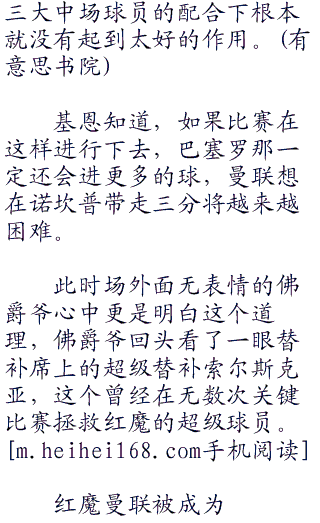 三大中场球员的配合下根本
就没有起到太好的作用。(有
意思书院)
基恩知道，如果比赛在
这样进行下去，巴塞罗那一
定还会进更多的球，曼联想
在诺坎普带走三分将越来越
困难。
此时场外面无表情的佛
爵爷心中更是明白这个道
理，佛爵爷回头看了一眼替
补席上的超级替补索尔斯克
亚，这个曾经在无数次关键
比赛拯救红魔的超级球员。
[m.heihei168.com手机阅读]
红魔曼联被成为